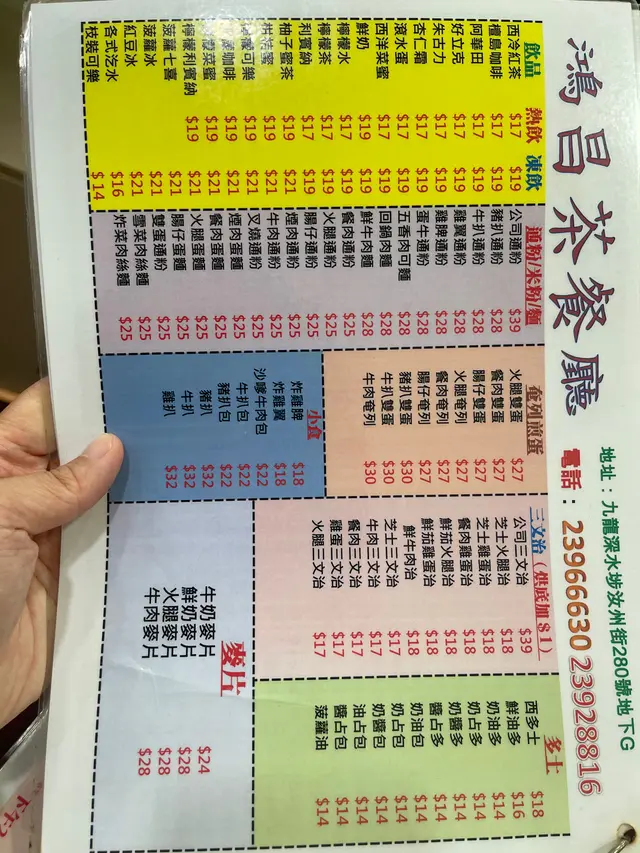 鴻昌茶餐廳
地址：九龍深水埗汝州街280號地下G
電話：23966630 23928816
飲品 熱飲 凍飲
西冷紅茶 $17 $19
檀島咖啡 $17 $19
阿華田 $17 $19
好立克 $17 $19
朱古力 $17 $19
杏仁霜 $17 $19
滾水蛋 $17 $19
西洋菜蜜 $17 $19
鮮奶 $19 $19
檸檬水 $17 $19
檸檬茶 $17 $19
利賓納 $17 $19
柚子蜜茶 $19 $21
柑桔蜜 $19 $21
可樂 $19 $21
咖啡 $19 $21
菜蜜 $19 $21
檸檬利賓納 $19 $21
菠蘿七喜 $21
菠蘿冰 $21
紅豆冰 $21
各式汽水 $16
枝裝可樂 $14
通粉/米粉/麵
公司通粉 $39
豬扒通粉 $28
牛扒通粉 $28
雞翼通粉 $28
雞脾通粉 $28
蛋牛通粉 $28
五香肉可麵 $28
回鍋肉麵 $28
鮮牛肉麵 $28
餐肉通粉 $25
火腿通粉 $25
腸仔通粉 $25
煙肉通粉 $25
牛肉通粉 $25
叉燒通粉 $25
煙肉蛋麵 $25
餐肉蛋麵 $25
火腿蛋麵 $25
腸仔蛋麵 $25
雙蛋通粉 $25
雪菜肉絲麵 $25
炸菜肉絲麵 $25
奄列煎蛋
火腿雙蛋 $27
餐肉雙蛋 $27
腸仔雙蛋 $27
火腿奄列 $27
餐肉奄列 $27
腸仔奄列 $27
豬扒雙蛋 $30
牛扒雙蛋 $30
牛肉奄列 $30
小食
炸雞脾 $18
炸雞翼 $18
沙嗲牛肉包 $22
牛扒包 $22
豬扒包 $22
豬扒 $32
牛扒 $32
雞扒 $32
三文治（烘底加$1）
公司三文治 $39
芝士火腿治 $18
芝士雞蛋治 $18
餐肉雞蛋治 $18
鮮茄火腿治 $18
鮮茄雞蛋治 $18
鮮牛肉治 $18
芝士三文治 $17
牛肉三文治 $17
雞蛋三文治 $17
火腿三文治 $17
麥片
牛奶麥片 $24
鮮奶麥片 $28
火腿麥片 $28
牛肉麥片 $28
多士
西多士 $18
鮮油多 $16
奶油多 $14
奶醬多 $14
醬占多 $14
奶占多 $14
奶油包 $14
奶占包 $14
奶醬包 $14
油占包 $14
醬占包 $14
菠蘿油 $14